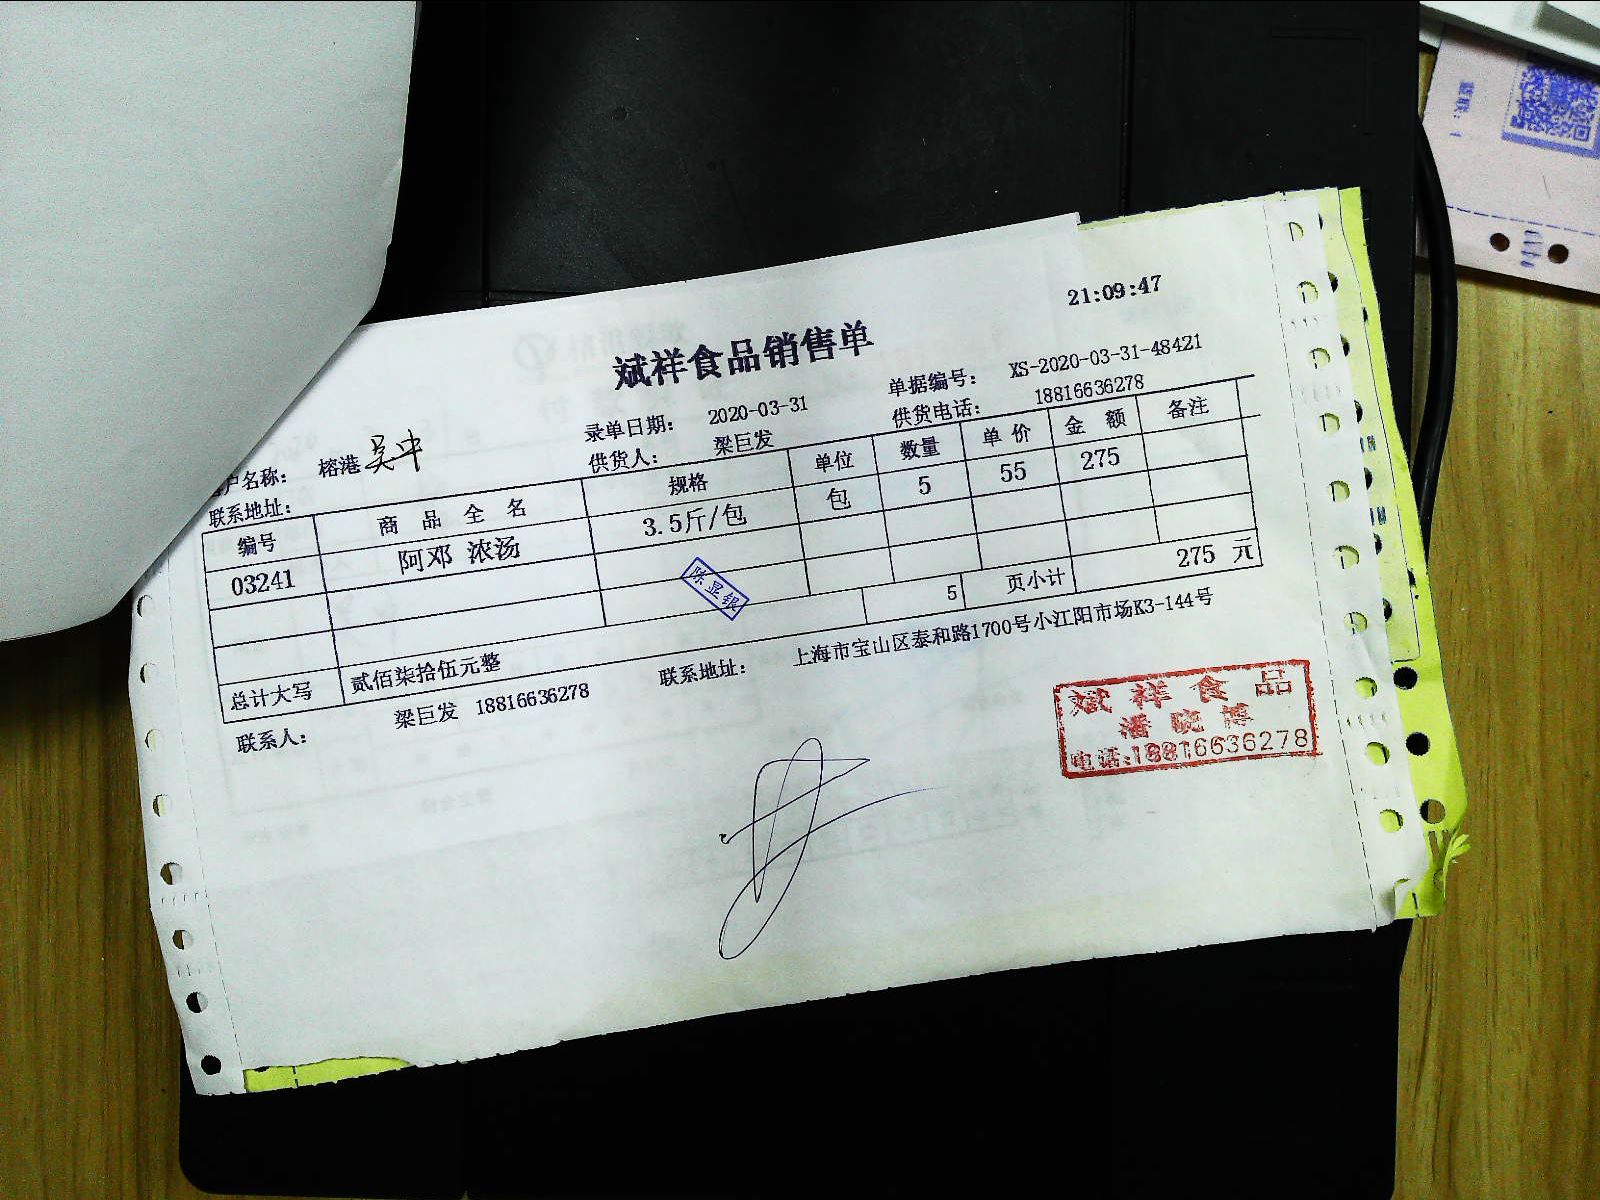 21:09:47
斌祥食品销售单
户名称: 榕港 吴中 录单日期: 2020-03-31 单据编号: XS-2020-03-31-48421
联系地址: 供货人: 梁巨发 供货电话: 18816636278
编号 商品全名 规格 单位 数量 单价 金额 备注
03241 阿邓 浓汤 3.5斤/包 包 5 55 275
陈显银
5 页小计 275 元
总计大写 贰佰柒拾伍元整
联系人: 梁巨发 18816636278 联系地址: 上海市宝山区泰和路1700号小江阳市场K3-144号
斌祥食品
潘晓博
电话:18816636278